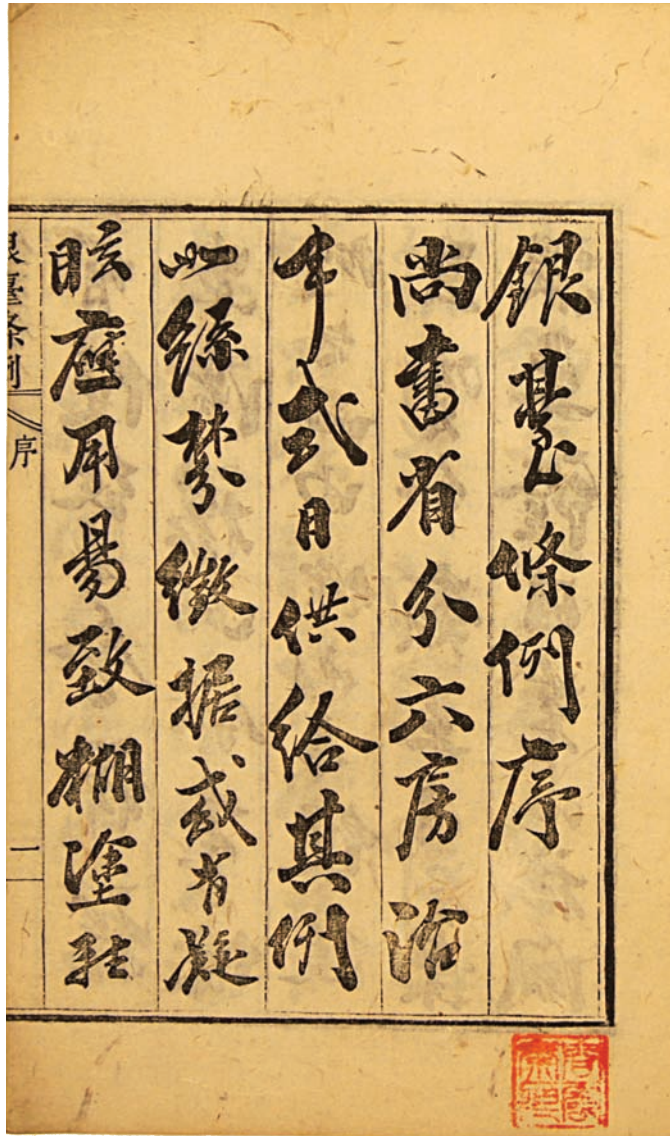 銀臺條例序
尚書省分六房治
事式日供給其例
如絲棼徵据或有疑
眩應用易致糊塗
銀臺條例 序 一